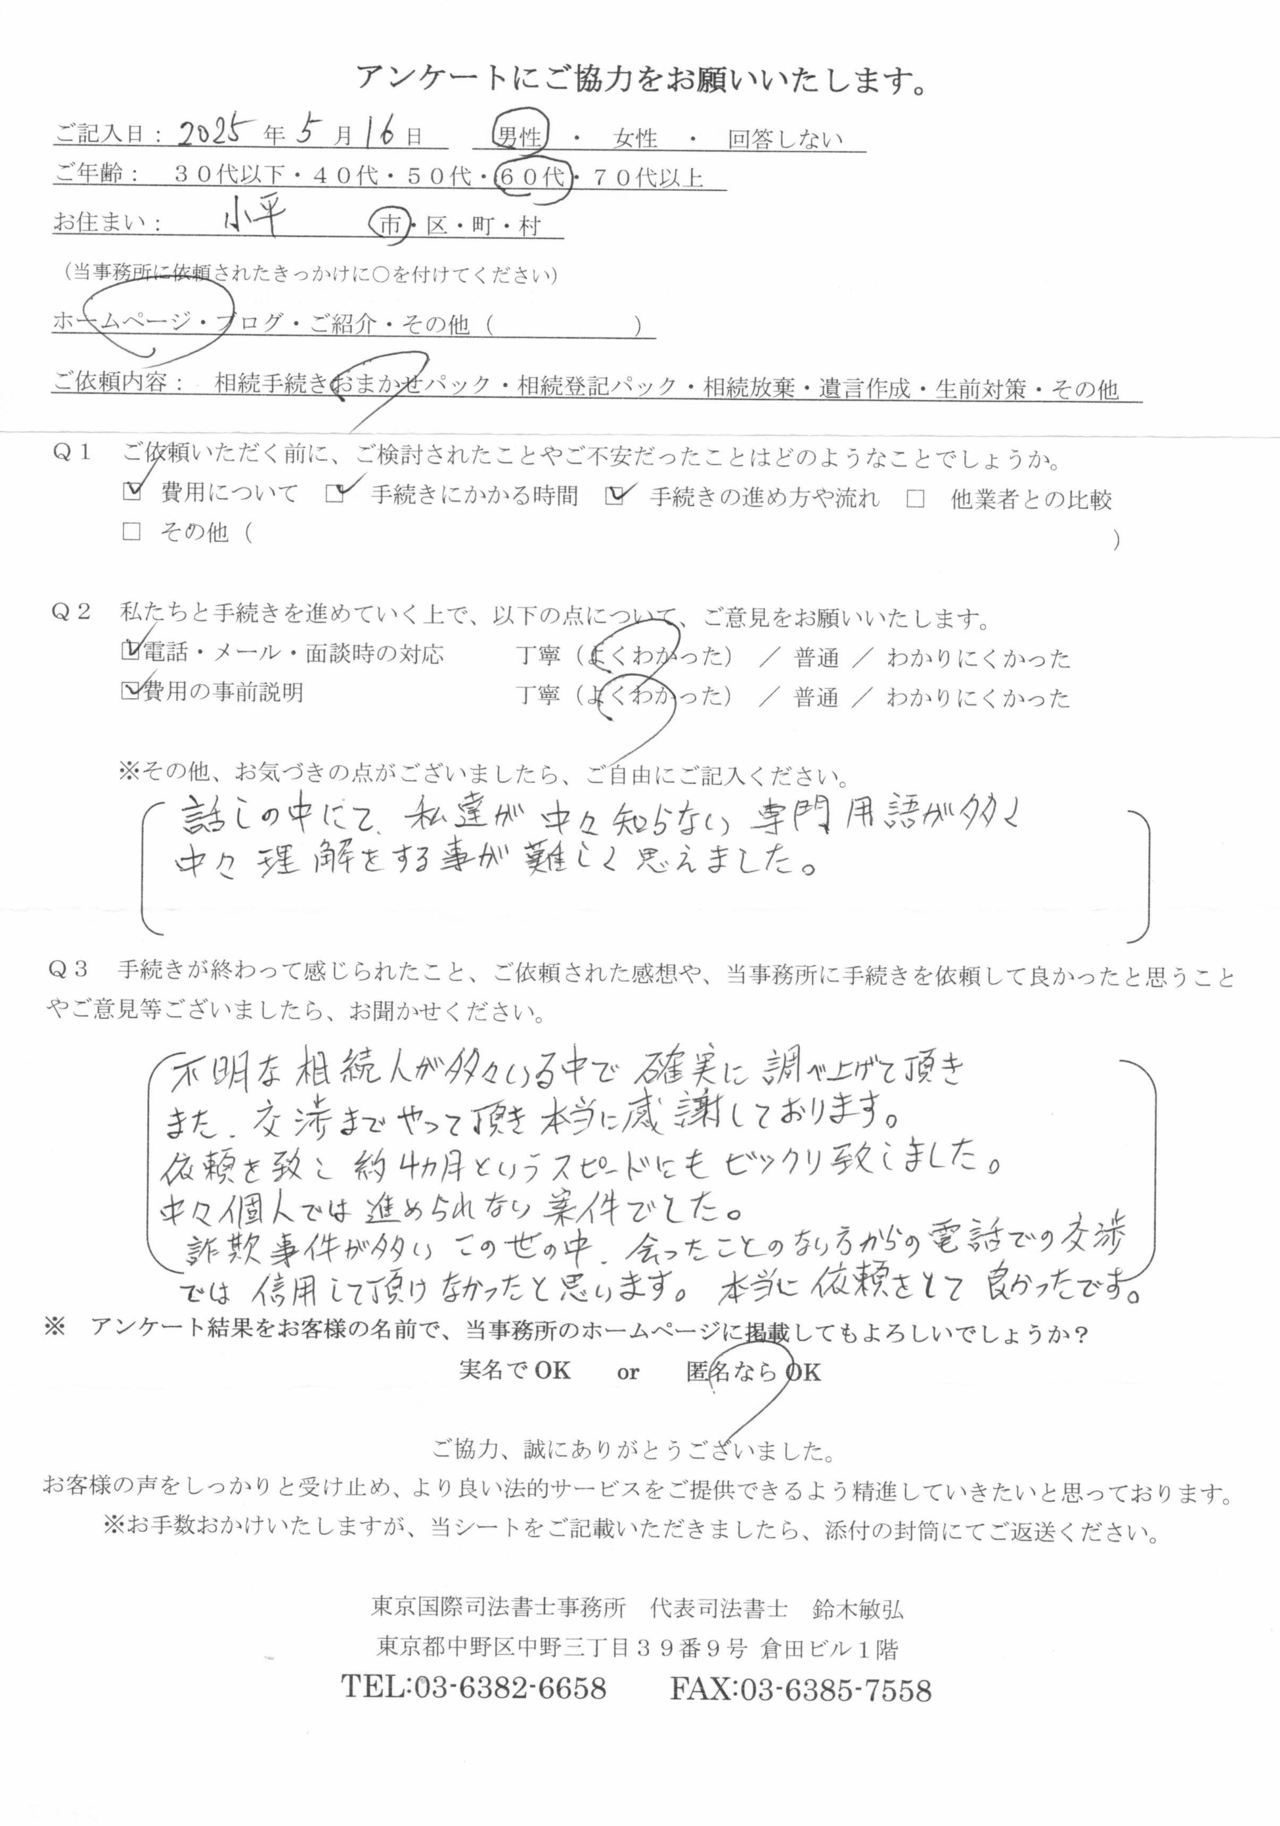 アンケートにご協力をお願いいたします。
ご記入日： 2025 年 5 月 16 日　男性 ・ 女性 ・ 回答しない
ご年齢： ３０代以下・４０代・５０代・６０代・７０代以上
お住まい： 小平 市・区・町・村
（当事務所に依頼されたきっかけに○を付けてください）
ホームページ・ブログ・ご紹介・その他（　　　　　　）
ご依頼内容： 相続手続きおまかせパック・相続登記パック・相続放棄・遺言作成・生前対策・その他
Ｑ１　ご依頼いただく前に、ご検討されたことやご不安だったことはどのようなことでしょうか。
☑ 費用について ☑ 手続きにかかる時間 ☑ 手続きの進め方や流れ □ 他業者との比較
□ その他（　　　　　　）
Ｑ２　私たちと手続きを進めていく上で、以下の点について、ご意見をお願いいたします。
☑電話・メール・面談時の対応　丁寧（よくわかった） ／ 普通 ／ わかりにくかった
☑費用の事前説明　丁寧（よくわかった） ／ 普通 ／ わかりにくかった
※その他、お気づきの点がございましたら、ご自由にご記入ください。
話しの中にて、私達が中々知らない専門用語が多く
中々理解をする事が難しく思えました。
Ｑ３　手続きが終わって感じられたこと、ご依頼された感想や、当事務所に手続きを依頼して良かったと思うこと
やご意見等ございましたら、お聞かせください。
不明な相続人が多々いる中で確実に調べ上げて頂き
また、交渉までやって頂き本当に感謝しております。
依頼を致し約4カ月というスピードにもビックリ致しました。
中々個人では進められない案件でした。
詐欺事件が多いこの世の中、会ったことのない方からの電話での交渉
では信用して頂けなかったと思います。本当に依頼をして良かったです。
※　アンケート結果をお客様の名前で、当事務所のホームページに掲載してもよろしいでしょうか？
実名で OK　or　匿名なら OK
ご協力、誠にありがとうございました。
お客様の声をしっかりと受け止め、より良い法的サービスをご提供できるよう精進していきたいと思っております。
※お手数おかけいたしますが、当シートをご記載いただきましたら、添付の封筒にてご返送ください。
東京国際司法書士事務所　代表司法書士　鈴木敏弘
東京都中野区中野三丁目３９番９号 倉田ビル１階
TEL:03-6382-6658　FAX:03-6385-7558